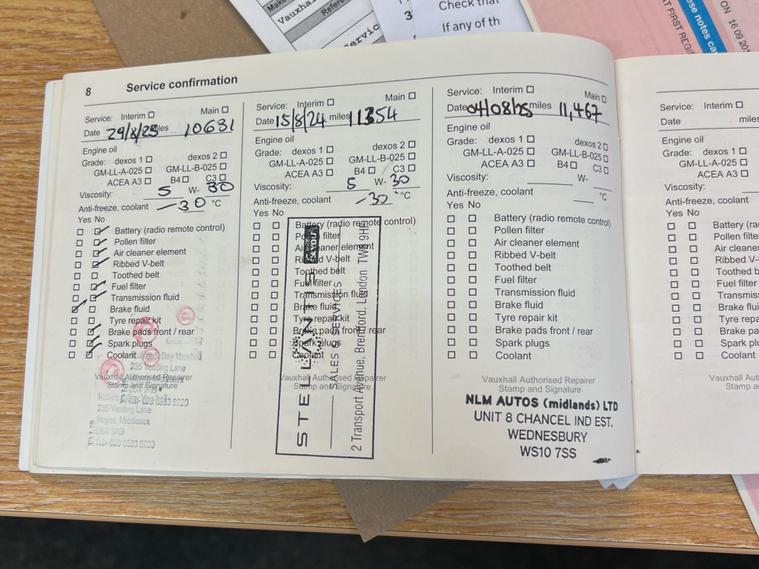 Make
Vauxhal
Refere
ervic
3
Check that
If any of th
ese notes ca
AT FIRST REGI
ON 16 09 20
8 Service confirmation
Service: Interim ☐ Main ☐
Date 29/8/23 miles 10631
Engine oil
Grade: dexos 1 ☐ dexos 2 ☐
GM-LL-A-025 ☐ GM-LL-B-025 ☐
ACEA A3 ☐ B4 ☐ C3 ☐
Viscosity: 5 W- 30
Anti-freeze, coolant -30 °C
Yes No
Battery (radio remote control)
Pollen filter
Air cleaner element
Ribbed V-belt
Toothed belt
Fuel filter
Transmission fluid
Brake fluid
Tyre repair kit
Brake pads front / rear
Spark plugs
Coolant
Vauxhall Authorised Repairer
Stamp and Signature
235 Yeading Lane
Hayes, Middlesex
Service: Interim ☐ Main ☐
Date 15/8/24 miles 11354
Engine oil
Grade: dexos 1 ☐ dexos 2 ☐
GM-LL-A-025 ☐ GM-LL-B-025 ☐
ACEA A3 ☐ B4 ☐ C3 ☐
Viscosity: 5 W- 30
Anti-freeze, coolant -30 °C
Yes No
Battery (radio remote control)
Pollen filter
Air cleaner element
Ribbed V-belt
Toothed belt
Fuel filter
Transmission fluid
Brake fluid
Tyre repair kit
Brake pads front / rear
Spark plugs
Coolant
Vauxhall Authorised Repairer
Stamp and Signature
STELLANTIS &YOU
SALES SERVICES
2 Transport Avenue, Brentford, London TW8 9HF
Service: Interim ☐ Main ☐
Date 04/08/25 miles 11,467
Engine oil
Grade: dexos 1 ☐ dexos 2 ☐
GM-LL-A-025 ☐ GM-LL-B-025 ☐
ACEA A3 ☐ B4 ☐ C3 ☐
Viscosity: W-
Anti-freeze, coolant °C
Yes No
Battery (radio remote control)
Pollen filter
Air cleaner element
Ribbed V-belt
Toothed belt
Fuel filter
Transmission fluid
Brake fluid
Tyre repair kit
Brake pads front / rear
Spark plugs
Coolant
Vauxhall Authorised Repairer
Stamp and Signature
NLM AUTOS (midlands) LTD
UNIT 8 CHANCEL IND EST.
WEDNESBURY
WS10 7SS
Service: Interim ☐
Date miles
Engine oil
Grade: dexos 1 ☐
GM-LL-A-025 ☐
ACEA A3 ☐
Viscosity:
Anti-freeze, coolant
Yes No
Battery (ra
Pollen filte
Air cleane
Ribbed V-
Toothed b
Fuel filter
Transmiss
Brake fluid
Tyre repa
Brake pa
Spark plu
Coolant
Vauxhall Aut
Stamp a